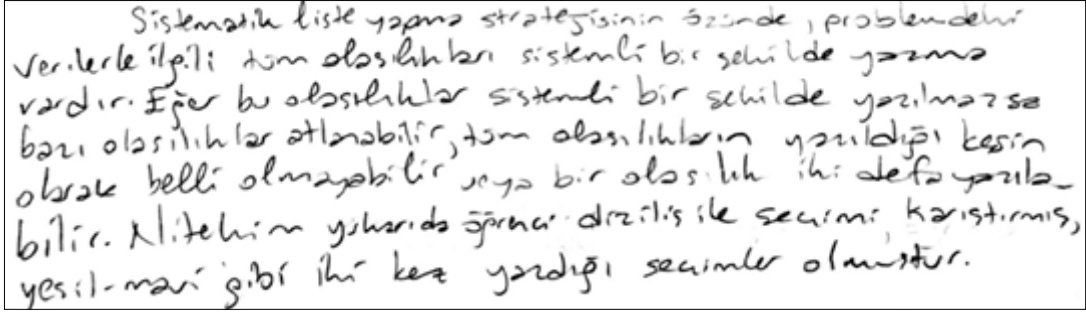 Sistematik liste yapma stratejisinin özünde, problemdeki
verilerle ilgili tüm olasılıkları sistemli bir şekilde yazma
vardır. Eğer bu olasılıklar sistemli bir şekilde yazılmazsa
bazı olasılıklar atlanabilir, tüm olasılıkların yazıldığı kesin
olarak belli olmayabilir veya bir olasılık iki defa yazıla-
bilir. Nitekim yukarıda öğrenci diziliş ile seçimi karıştırmış,
yeşil-mavi gibi iki kez yazdığı seçimler olmuştur.